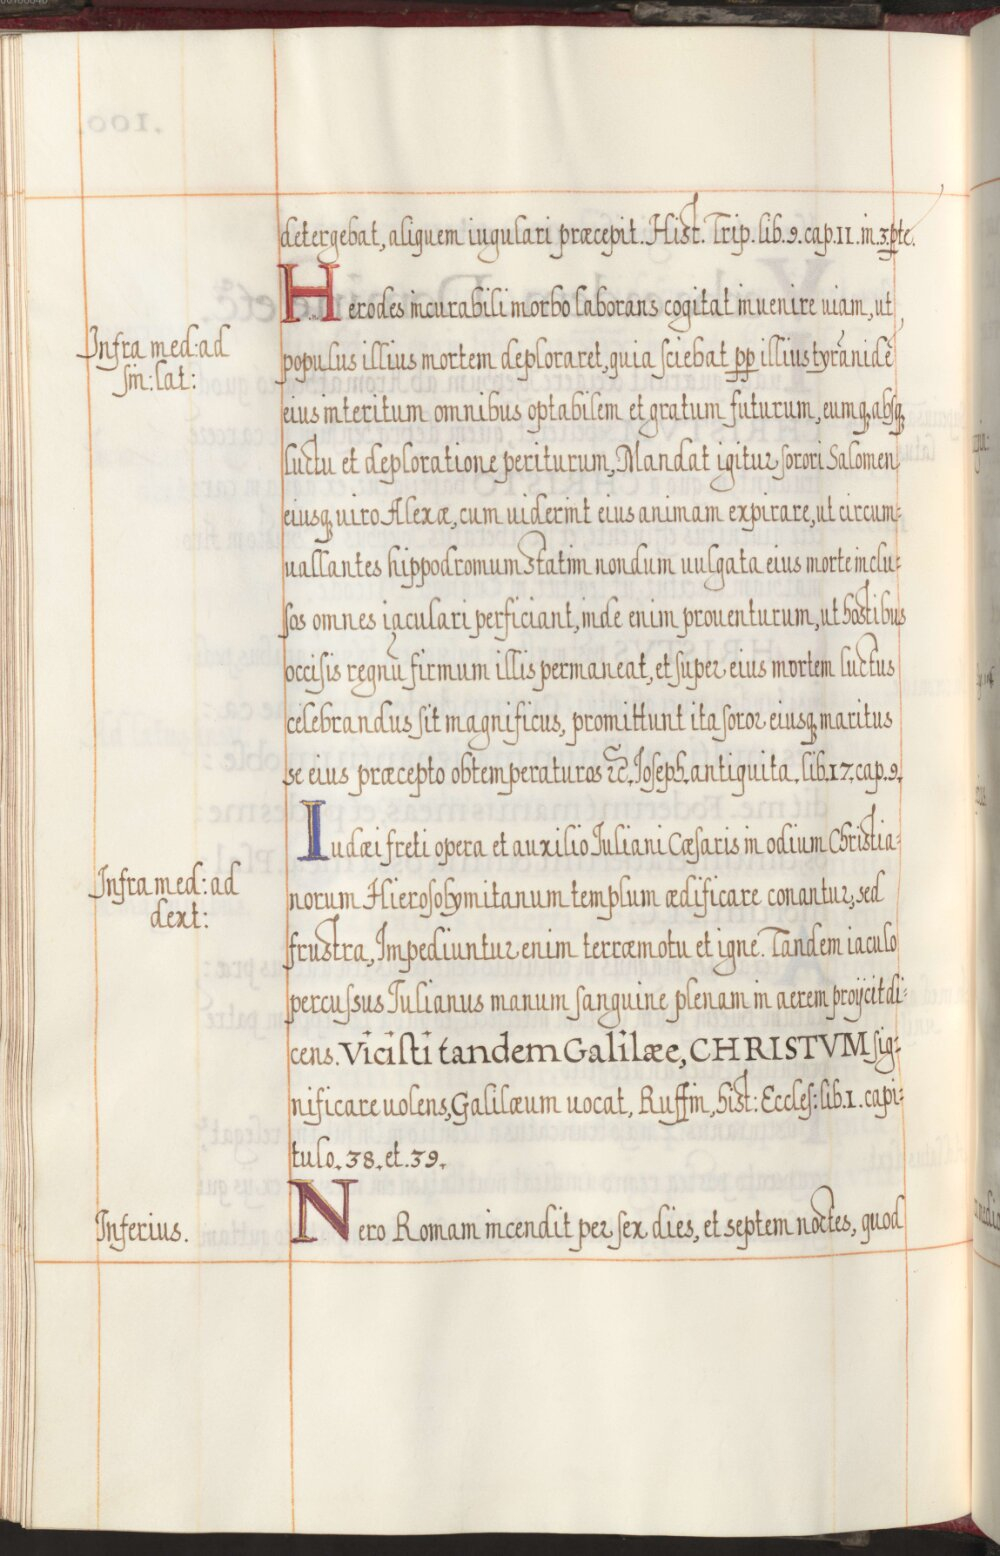 detergebat, aliquem iugulari præcepit. Hist. Trip. lib. 9. cap. 11. in. 3. pte.
Infra med: ad
sin: lat:
Herodes incurabili morbo laborans cogitat inuenire uiam, ut
populus illius mortem deploraret, quia sciebat pp illius tyrānidē
eius interitum omnibus optabilem et gratum futurum, eumq; absq;
luctu et deploratione periturum, Mandat igitur sorori Salomen
eiusq; uiro Alexæ, cum uiderint eius animam expirare, ut circum-
uallantes hippodromum statim nondum uulgata eius morte inclu-
sos omnes iaculari perficiant, inde enim prouenturum, ut hostibus
occisis regnū firmum illis permaneat, et super eius mortem luctus
celebrandus sit magnificus, promittunt ita soror eiusq; maritus
se eius præcepto obtemperaturos &c. Ioseph. antiquita. lib. 17. cap. 9.
Infra med: ad
dext:
Iudæi freti opera et auxilio Iuliani Cæsaris in odium Christia-
norum Hierosolymitanum templum ædificare conantur, sed
frustra, Impediuntur enim terræmotu et igne. Tandem iaculo
percussus Iulianus manum sanguine plenam in aerem proijcit di-
cens. Vicisti tandem Galilæe, CHRISTVM sig-
nificare uolens, Galilæum uocat, Ruffin, hist: Eccles: lib. 1. capi-
tulo. 38. et. 39.
Inferius.
Nero Romam incendit per sex dies, et septem noctes, quod